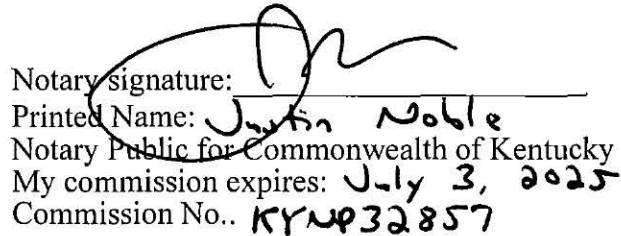 Notary signature:
Printed Name: Justin Noble
Notary Public for Commonwealth of Kentucky
My commission expires: July 3, 2025
Commission No.. KYNP32857